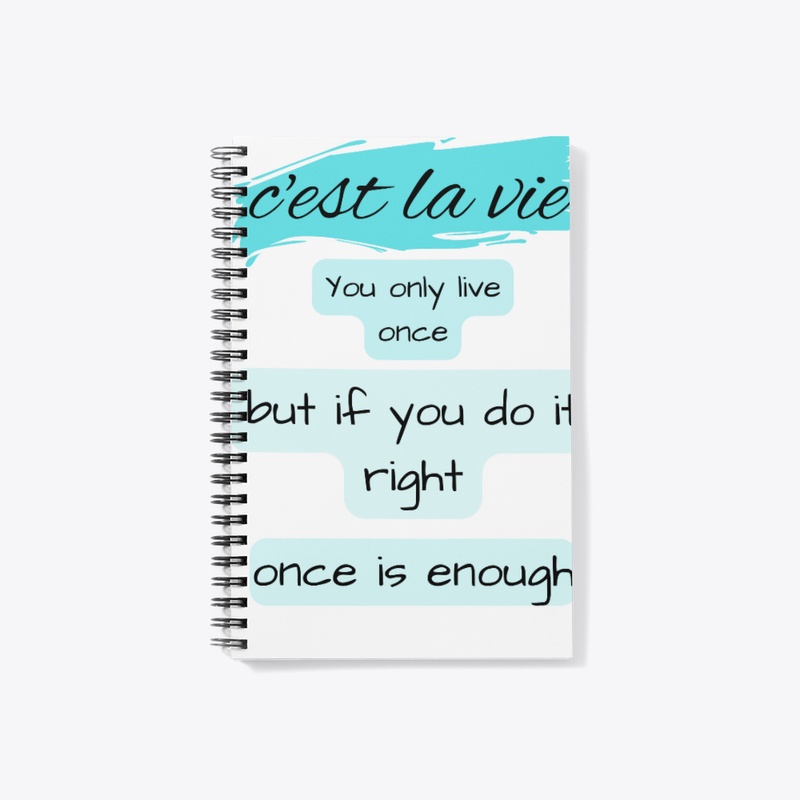 c'est la vie
You only live
once
but if you do it
right
once is enough